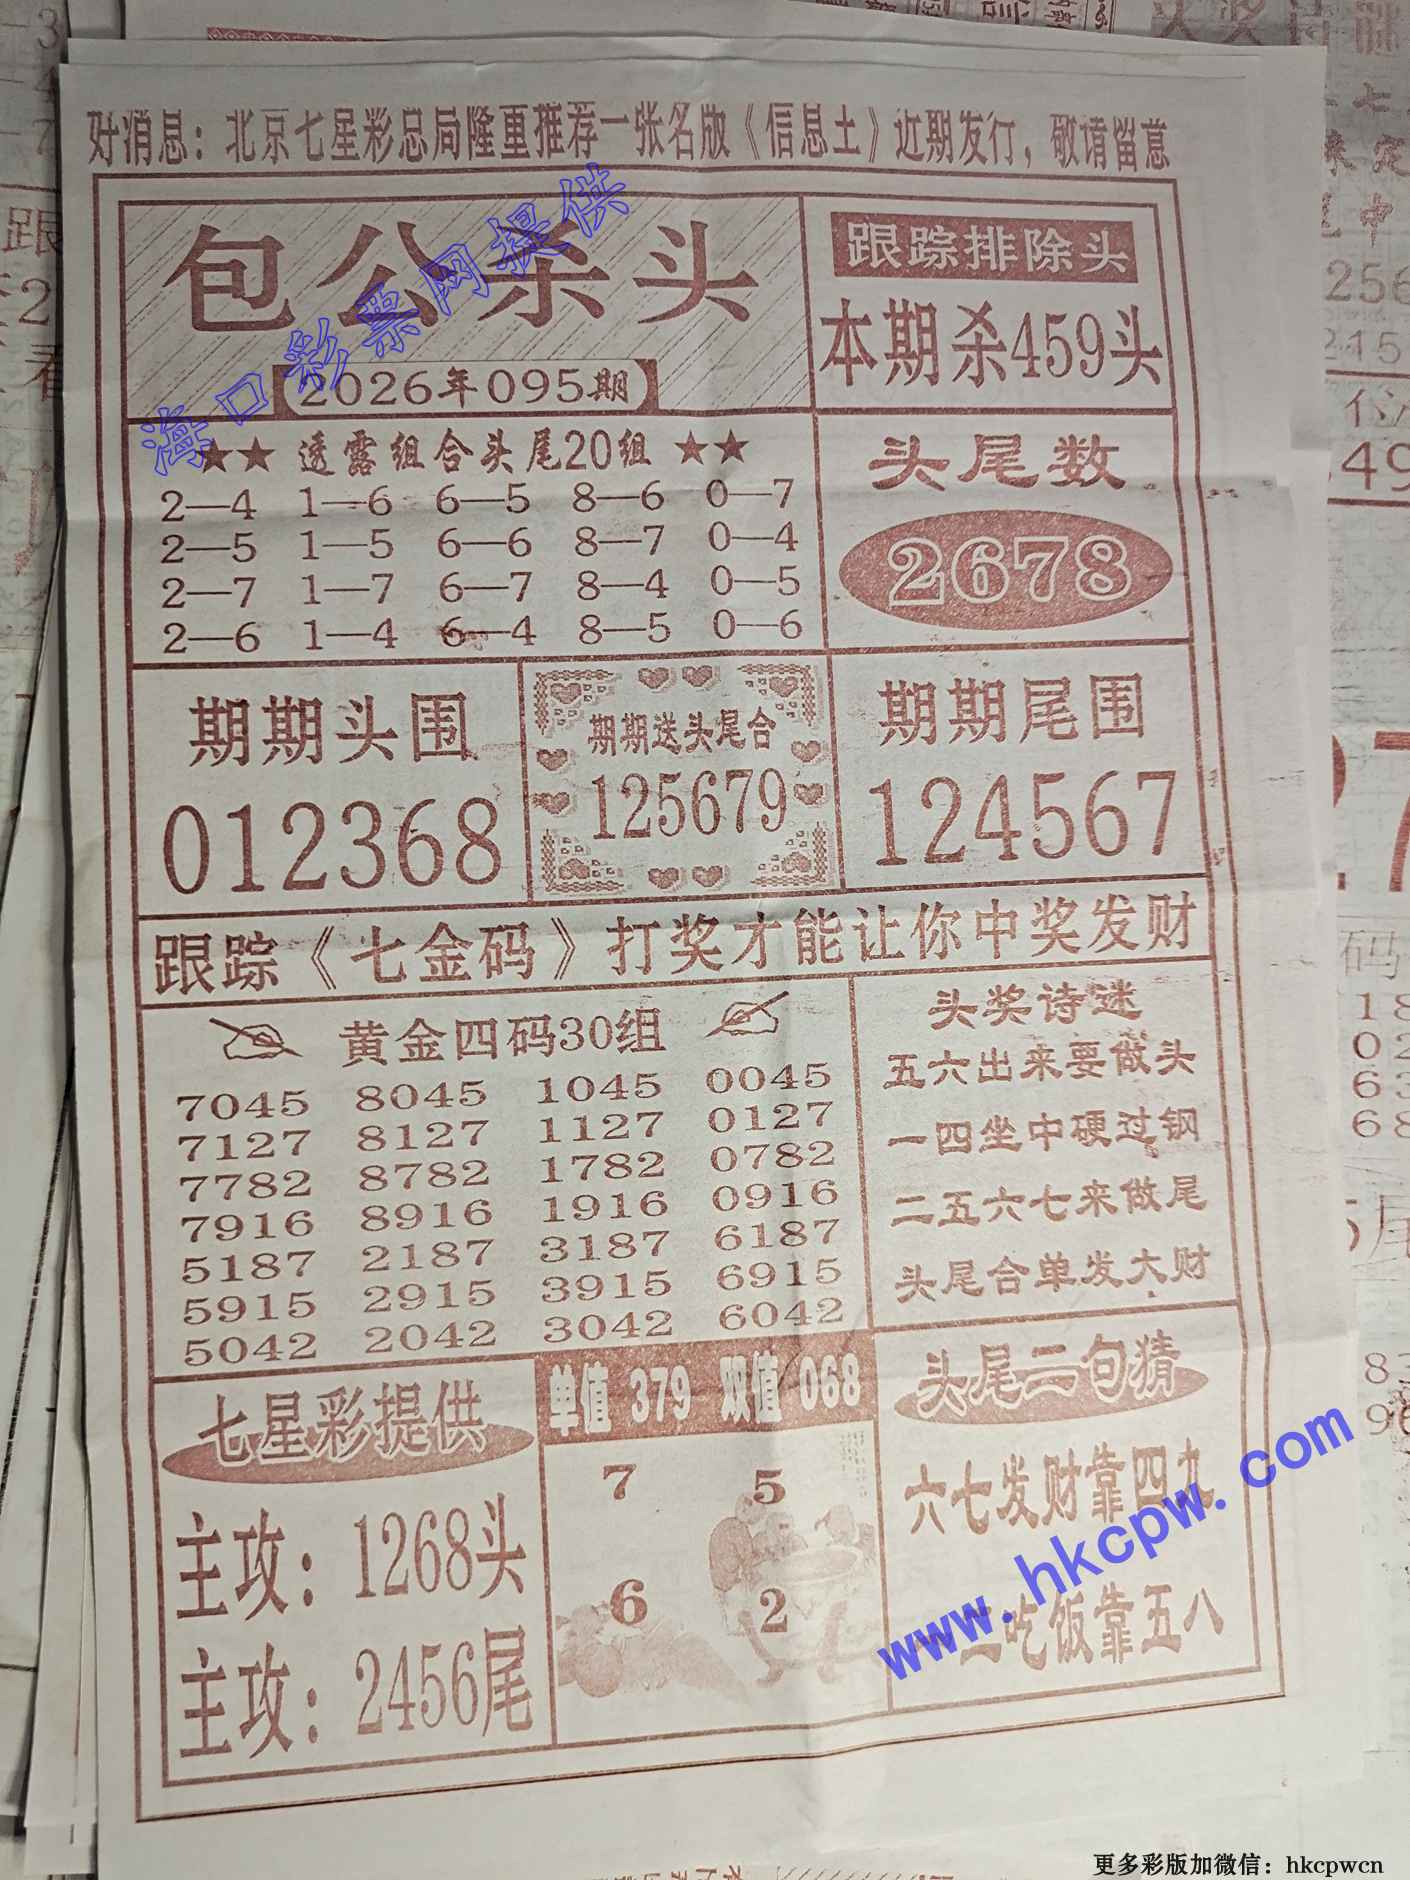 好消息：北京七星彩总局隆重推荐一张名版《信息王》近期发行，敬请留意
包公杀头
2026年095期
跟踪排除头
本期杀459头
★★ 透露组合头尾20组 ★★
2—4 1—6 6—5 8—6 0—7
2—5 1—5 6—6 8—7 0—4
2—7 1—7 6—7 8—4 0—5
2—6 1—4 6—4 8—5 0—6
头尾数
2678
期期头围
012368
期期送头尾合
125679
期期尾围
124567
跟踪《七金码》打奖才能让你中奖发财
黄金四码30组
7045 8045 1045 0045
7127 8127 1127 0127
7782 8782 1782 0782
7916 8916 1916 0916
5187 2187 3187 6187
5915 2915 3915 6915
5042 2042 3042 6042
头奖诗迷
五六出来要做头
一四坐中硬过钢
二五六七来做尾
头尾合单发大财
七星彩提供
主攻：1268头
主攻：2456尾
单值 379 双值 068
7 5
6 2
头尾二句猜
六七发财靠四九
二吃饭靠五八
海口彩票网提供
www.hkcpw.com
更多彩版加微信：hkcpwcn